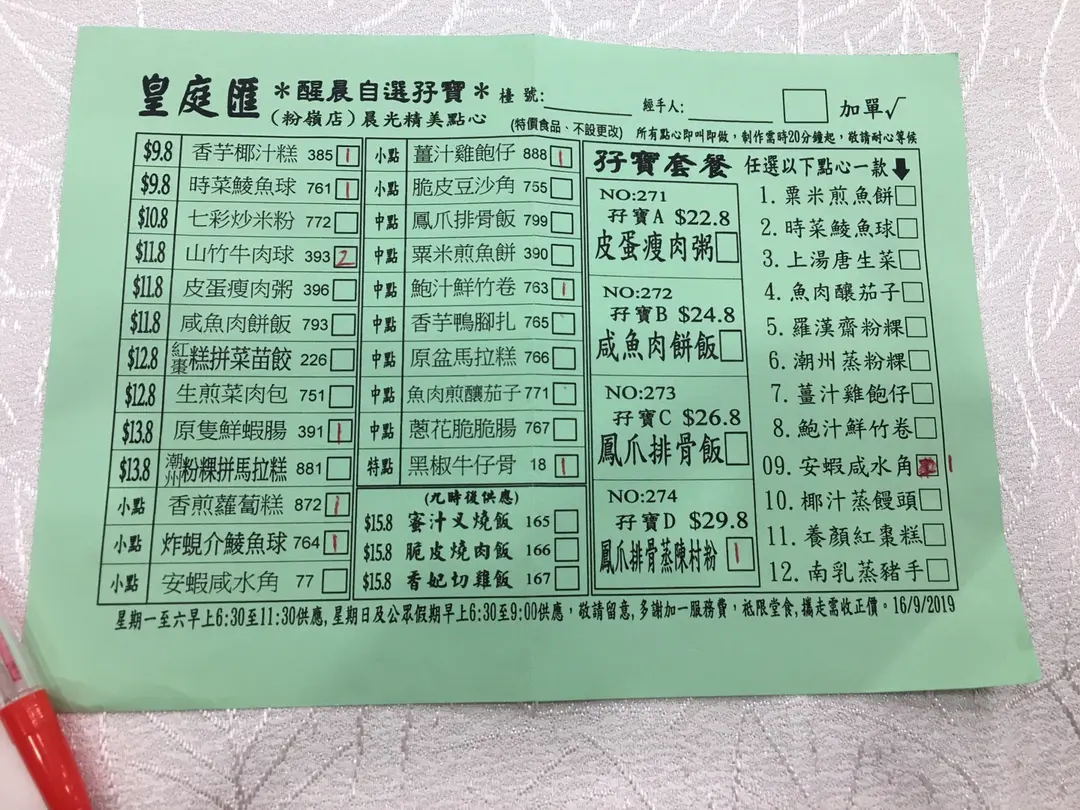 皇庭匯 *醒晨自選孖寶* 檯號: 經手人: 加單√
(粉嶺店)晨光精美點心 (特價食品、不設更改) 所有點心即叫即做，制作需時20分鐘起，敬請耐心等候
$9.8 香芋椰汁糕 385 1
$9.8 時菜鯪魚球 761 1
$10.8 七彩炒米粉 772
$11.8 山竹牛肉球 393 2
$11.8 皮蛋瘦肉粥 396
$11.8 咸魚肉餅飯 793
$12.8 紅棗糕拼菜苗餃 226
$12.8 生煎菜肉包 751
$13.8 原隻鮮蝦腸 391 1
$13.8 潮州粉粿拼馬拉糕 881
小點 香煎蘿蔔糕 872 1
小點 炸蜆介鯪魚球 764 1
小點 安蝦咸水角 77
小點 薑汁雞飽仔 888 1
小點 脆皮豆沙角 755
中點 鳳爪排骨飯 799
中點 粟米煎魚餅 390
中點 鮑汁鮮竹卷 763 1
中點 香芋鴨腳扎 765
中點 原盆馬拉糕 766
中點 魚肉煎釀茄子 771
中點 蔥花脆脆腸 767
特點 黑椒牛仔骨 18 1
(九時後供應)
$15.8 蜜汁叉燒飯 165
$15.8 脆皮燒肉飯 166
$15.8 香妃切雞飯 167
孖寶套餐 任選以下點心一款
NO:271
孖寶A $22.8
皮蛋瘦肉粥
NO:272
孖寶B $24.8
咸魚肉餅飯
NO:273
孖寶C $26.8
鳳爪排骨飯
NO:274
孖寶D $29.8
鳳爪排骨蒸陳村粉 1
1. 粟米煎魚餅
2. 時菜鯪魚球
3. 上湯唐生菜
4. 魚肉釀茄子
5. 羅漢齋粉粿
6. 潮州蒸粉粿
7. 薑汁雞飽仔
8. 鮑汁鮮竹卷
09. 安蝦咸水角 1
10. 椰汁蒸饅頭
11. 養顏紅棗糕
12. 南乳蒸豬手
星期一至六早上6:30至11:30供應,星期日及公眾假期早上6:30至9:00供應，敬請留意,多謝加一服務費，祗限堂食,攜走需收正價。16/9/2019